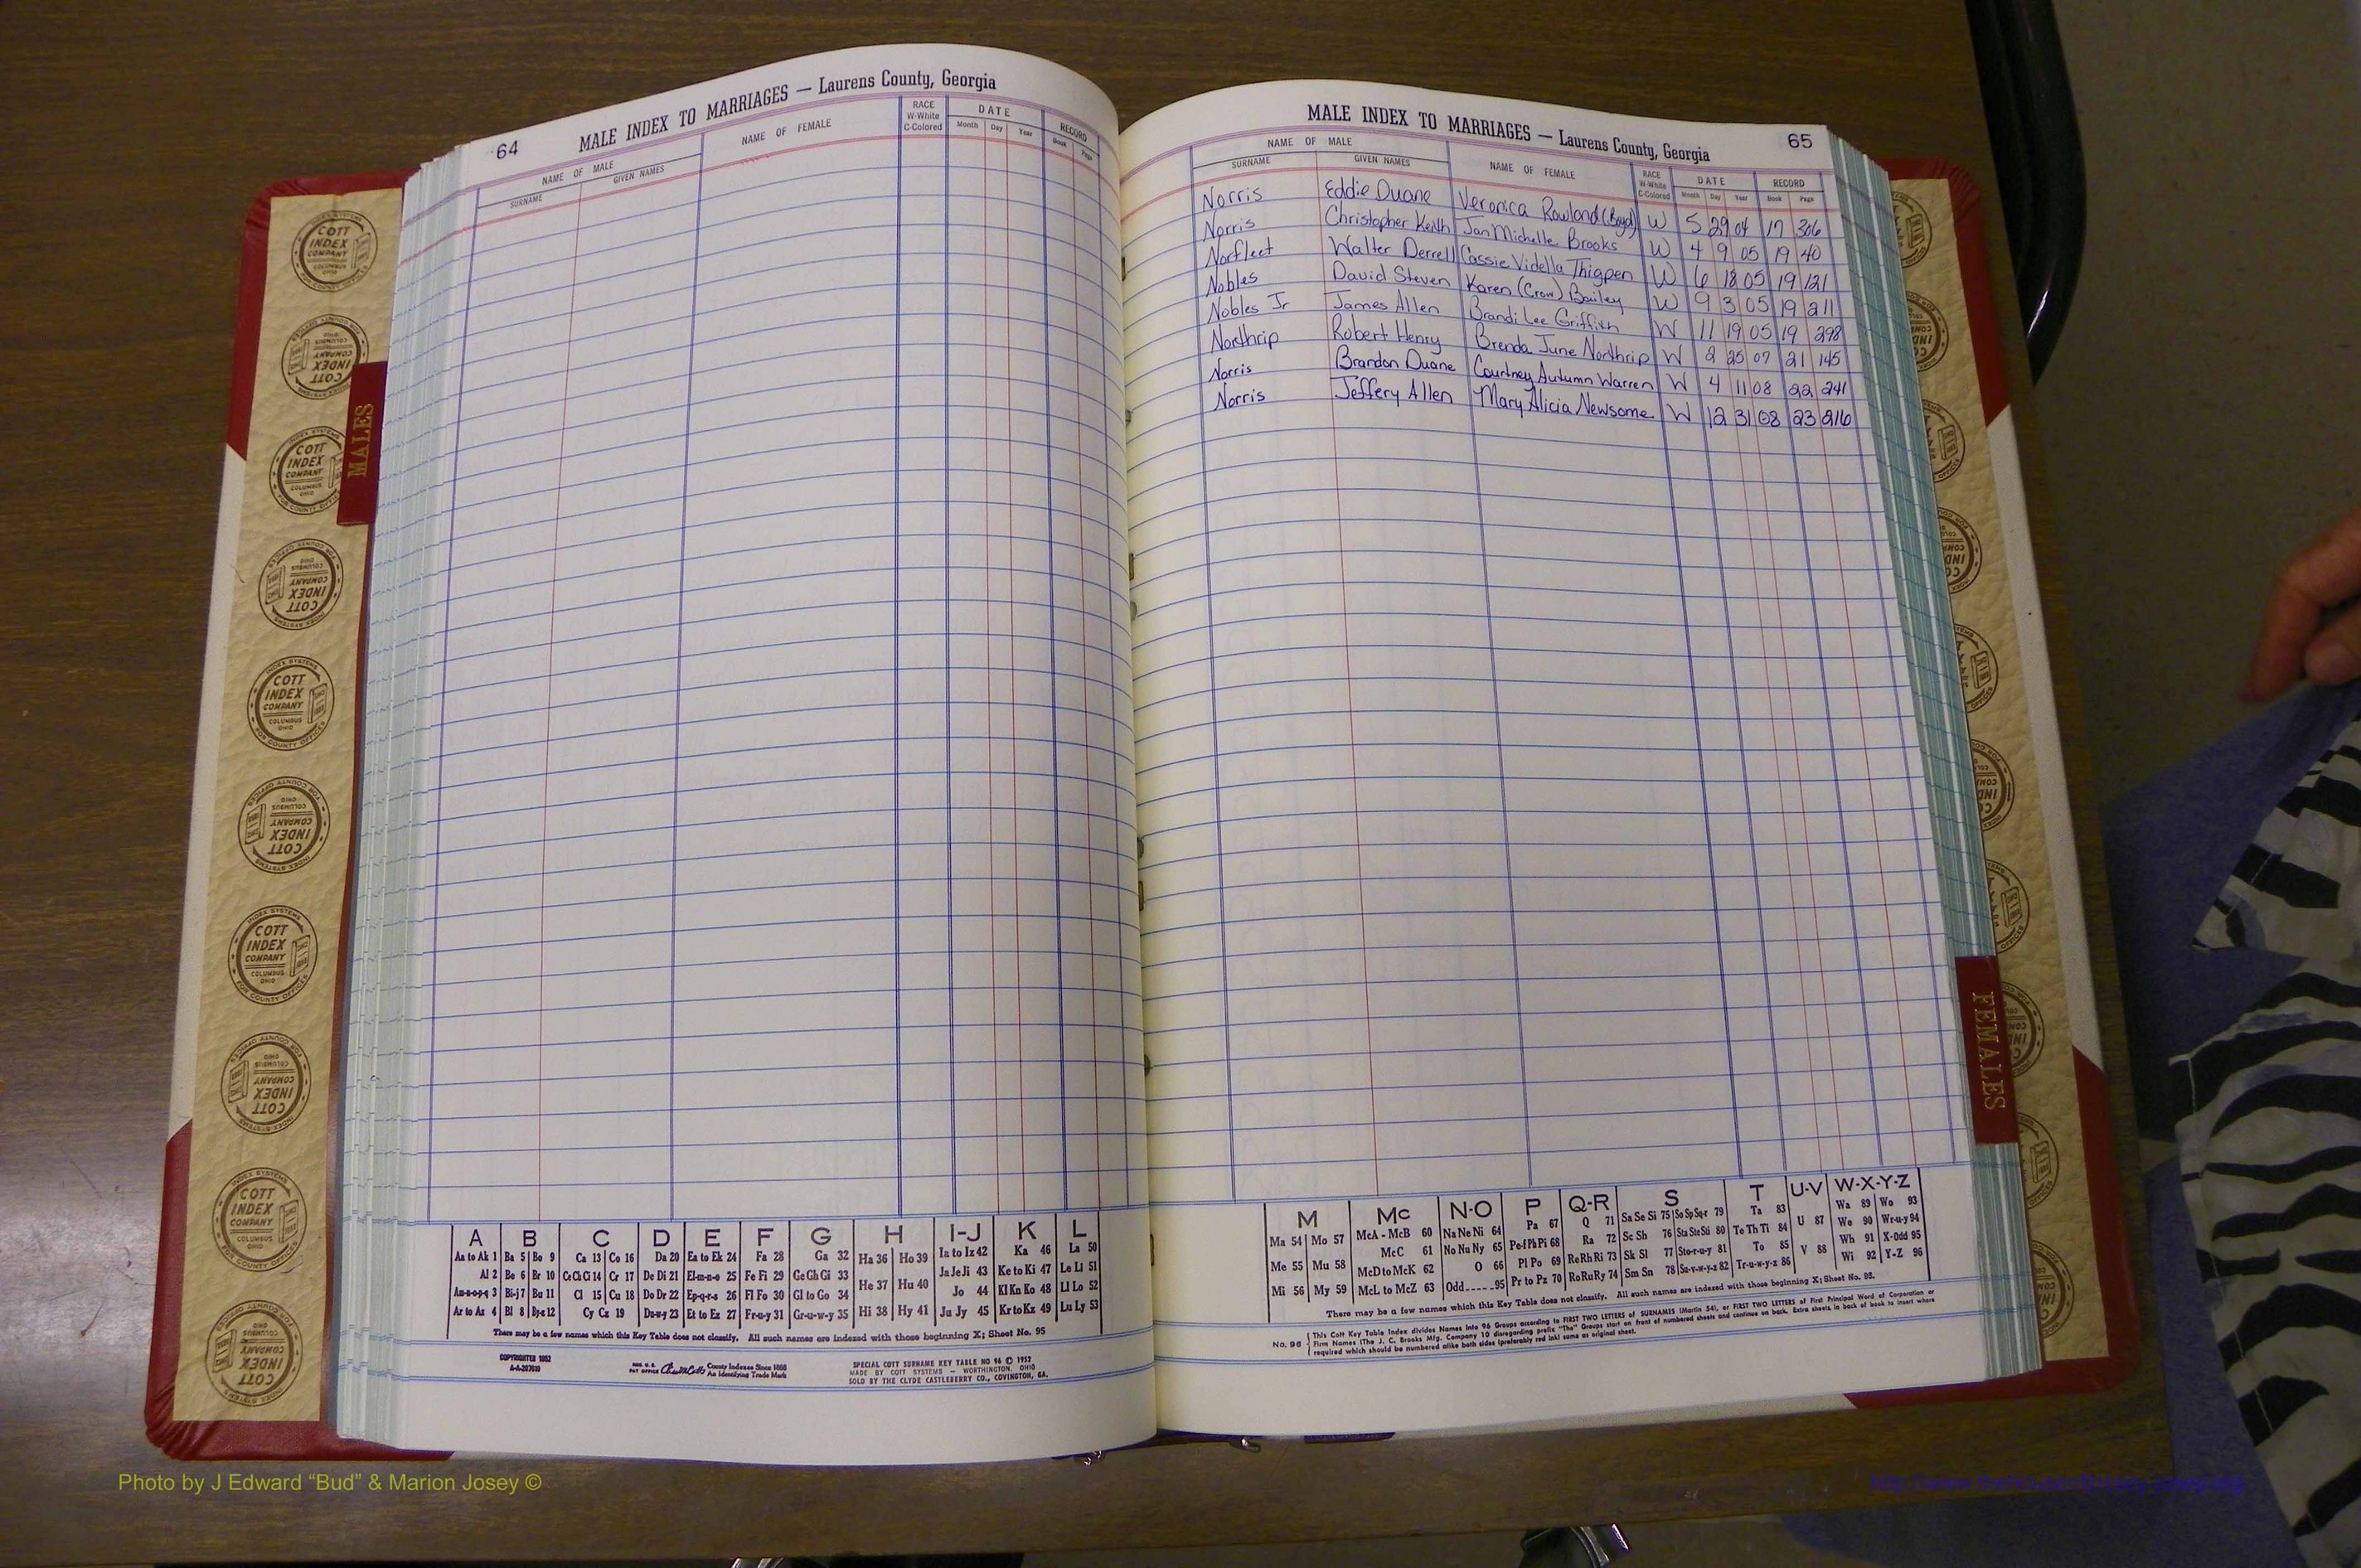 64 MALE INDEX TO MARRIAGES — Laurens County, Georgia
NAME OF MALE NAME OF FEMALE RACE W-White C-Colored DATE RECORD
SURNAME GIVEN NAMES Month Day Year Book Page
MALE INDEX TO MARRIAGES — Laurens County, Georgia 65
NAME OF MALE NAME OF FEMALE RACE W-White C-Colored DATE RECORD
SURNAME GIVEN NAMES Month Day Year Book Page
Norris Eddie Duane Veronica Rowland (Boyd) W 5 29 04 17 306
Norris Christopher Keith Jan Michelle Brooks W 4 9 05 19 40
Norfleet Walter Derrell Cassie Vidella Thigpen W 6 18 05 19 121
Nobles David Steven Karen (Crow) Bailey W 9 3 05 19 211
Nobles Jr James Allen Brandi Lee Griffith W 11 19 05 19 298
Northrip Robert Henry Brenda June Northrip W 2 25 07 21 145
Norris Brandon Duane Courtney Autumn Warren W 4 11 08 22 241
Norris Jeffery Allen Mary Alicia Newsome W 12 31 08 23 216
MALES
FEMALES
COTT INDEX COMPANY COLUMBUS OHIO
INDEX SYSTEMS FOR COUNTY OFFICES
A B C D E F G H I-J K L
Aa to Ak 1 Ba 5 Bo 9 Ca 13 Co 16 Da 20 Ea to Ek 24 Fa 28 Ga 32 Ha 36 Ho 39 Ia to Iz 42 Ka 46 La 50
Al 2 Be 6 Br 10 Ce Ch Ci 14 Cr 17 De Di 21 El-m-n-o 25 Fe Fi 29 Ge Gh Gi 33 He 37 Hu 40 Ja Je Ji 43 Ke to Ki 47 Le Li 51
Am-n-o-p-q 3 Bi-j 7 Bu 11 Cl 15 Cu 18 Do Dr 22 Ep-q-r-s 26 Fl Fo 30 Gl to Go 34 Hi 38 Hy 41 Jo 44 Kl Kn Ko 48 Ll Lo 52
Ar to Az 4 Bl 8 By-z 12 Cy Cz 19 Du-w-y 23 Et to Ez 27 Fr-u-y 31 Gr-u-w-y 35 Ju Jy 45 Kr to Kz 49 Lu Ly 53
There may be a few names which this Key Table does not classify. All such names are indexed with those beginning X; Sheet No. 95
COPYRIGHTED 1952
A-A-207010
REG. U.S. PAT OFFICE County Indexes Since 1888
An Identifying Trade Mark
SPECIAL COTT SURNAME KEY TABLE NO 96 © 1952
MADE BY COTT SYSTEMS — WORTHINGTON, OHIO
SOLD BY THE CLYDE CASTLEBERRY CO., COVINGTON, GA.
M Mc N-O P Q-R S T U-V W-X-Y-Z
Ma 54 Mo 57 McA - McB 60 Na Ne Ni 64 Pa 67 Q 71 Sa Se Si 75 So Sp Sq-r 79 Ta 83 U 87 Wa 89 Wo 93
Me 55 Mu 58 McC 61 No Nu Ny 65 Pe-f Ph Pi 68 Ra 72 Sc Sh 76 Sta Ste Sti 80 Te Th Ti 84 V 88 We 90 Wr-u-y 94
Mi 56 My 59 McD to McK 62 O 66 Pl Po 69 Re Rh Ri 73 Sk Sl 77 Sto-r-u-y 81 To 85 Wh 91 X-Odd 95
McL to McZ 63 Odd 95 Pr to Pz 70 Ro Ru Ry 74 Sm Sn 78 Su-v-w-y-z 82 Tr-u-w-y-z 86 Wi 92 Y-Z 96
There may be a few names which this Key Table does not classify. All such names are indexed with those beginning X; Sheet No. 95.
No. 96 This Cott Key Table Index divides Names into 96 Groups according to FIRST TWO LETTERS of SURNAMES (Martin 54), or FIRST TWO LETTERS of First Principal Word of Corporation or
Firm Names (The J. C. Brooks Mfg. Company 10 disregarding prefix "The" Groups start on front of numbered sheets and continue on back. Extra sheets in back of book to insert where
required which should be numbered alike both sides (preferably red ink) same as original sheet.
Photo by J Edward “Bud” & Marion Josey ©